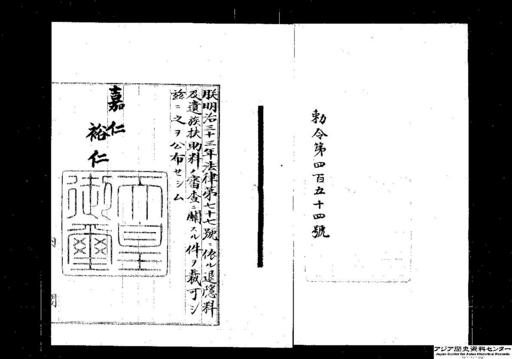 勅令第四百五十四號
朕明治三十三年法律第七十七號ニ依ル退隱料
及遺族扶助料ノ審査ニ關スル件ヲ裁可シ
玆ニ之ヲ公布セシム
嘉仁
裕仁
天皇
御璽
内閣
アジア歴史資料センター
Japan Center for Asian Historical Records